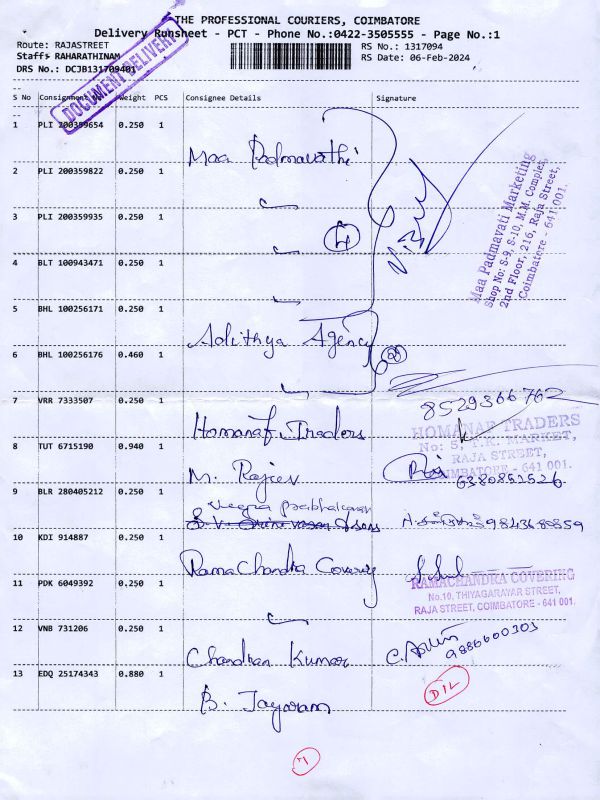 THE PROFESSIONAL COURIERS, COIMBATORE
Delivery Runsheet - PCT - Phone No.:0422-3505555 - Page No.:1
Route: RAJASTREET
RS No.: 1317094
Staff: RAHARATHINAM
RS Date: 06-Feb-2024
DRS No.: DCJB131709401
DOCUMENT DELIVERY
S No Consignment No Weight PCS Consignee Details Signature
1 PLI 200359654 0.250 1 Maa Padmavathi
2 PLI 200359822 0.250 1
3 PLI 200359935 0.250 1
4
Maa Padmavati Marketing
Shop No: S-9, S-10, M.M. Complex,
2nd Floor, 216, Raja Street,
Coimbatore - 641 001.
4 BLT 100943471 0.250 1
5 BHL 100256171 0.250 1 Adithya Agency
6 BHL 100256176 0.460 1
2
7 VRR 7333507 0.250 1 Homanaf Traders
8529366762
HOMANAF TRADERS
No: 5, T.K. MARKET,
RAJA STREET,
COIMBATORE - 641 001.
8 TUT 6715190 0.940 1 M. Rajiev
6380852526
9 BLR 280405212 0.250 1 Veera prabhakaran
9843680859
10 KDI 914887 0.250 1 RamaChandra Covering
RAMACHANDRA COVERING
No.10, THIYAGARAYAR STREET,
RAJA STREET, COIMBATORE - 641 001.
11 PDK 6049392 0.250 1
12 VNB 731206 0.250 1 Chandran Kumar
9886600303
13 EDQ 25174343 0.880 1 B. Jayaram
D/L